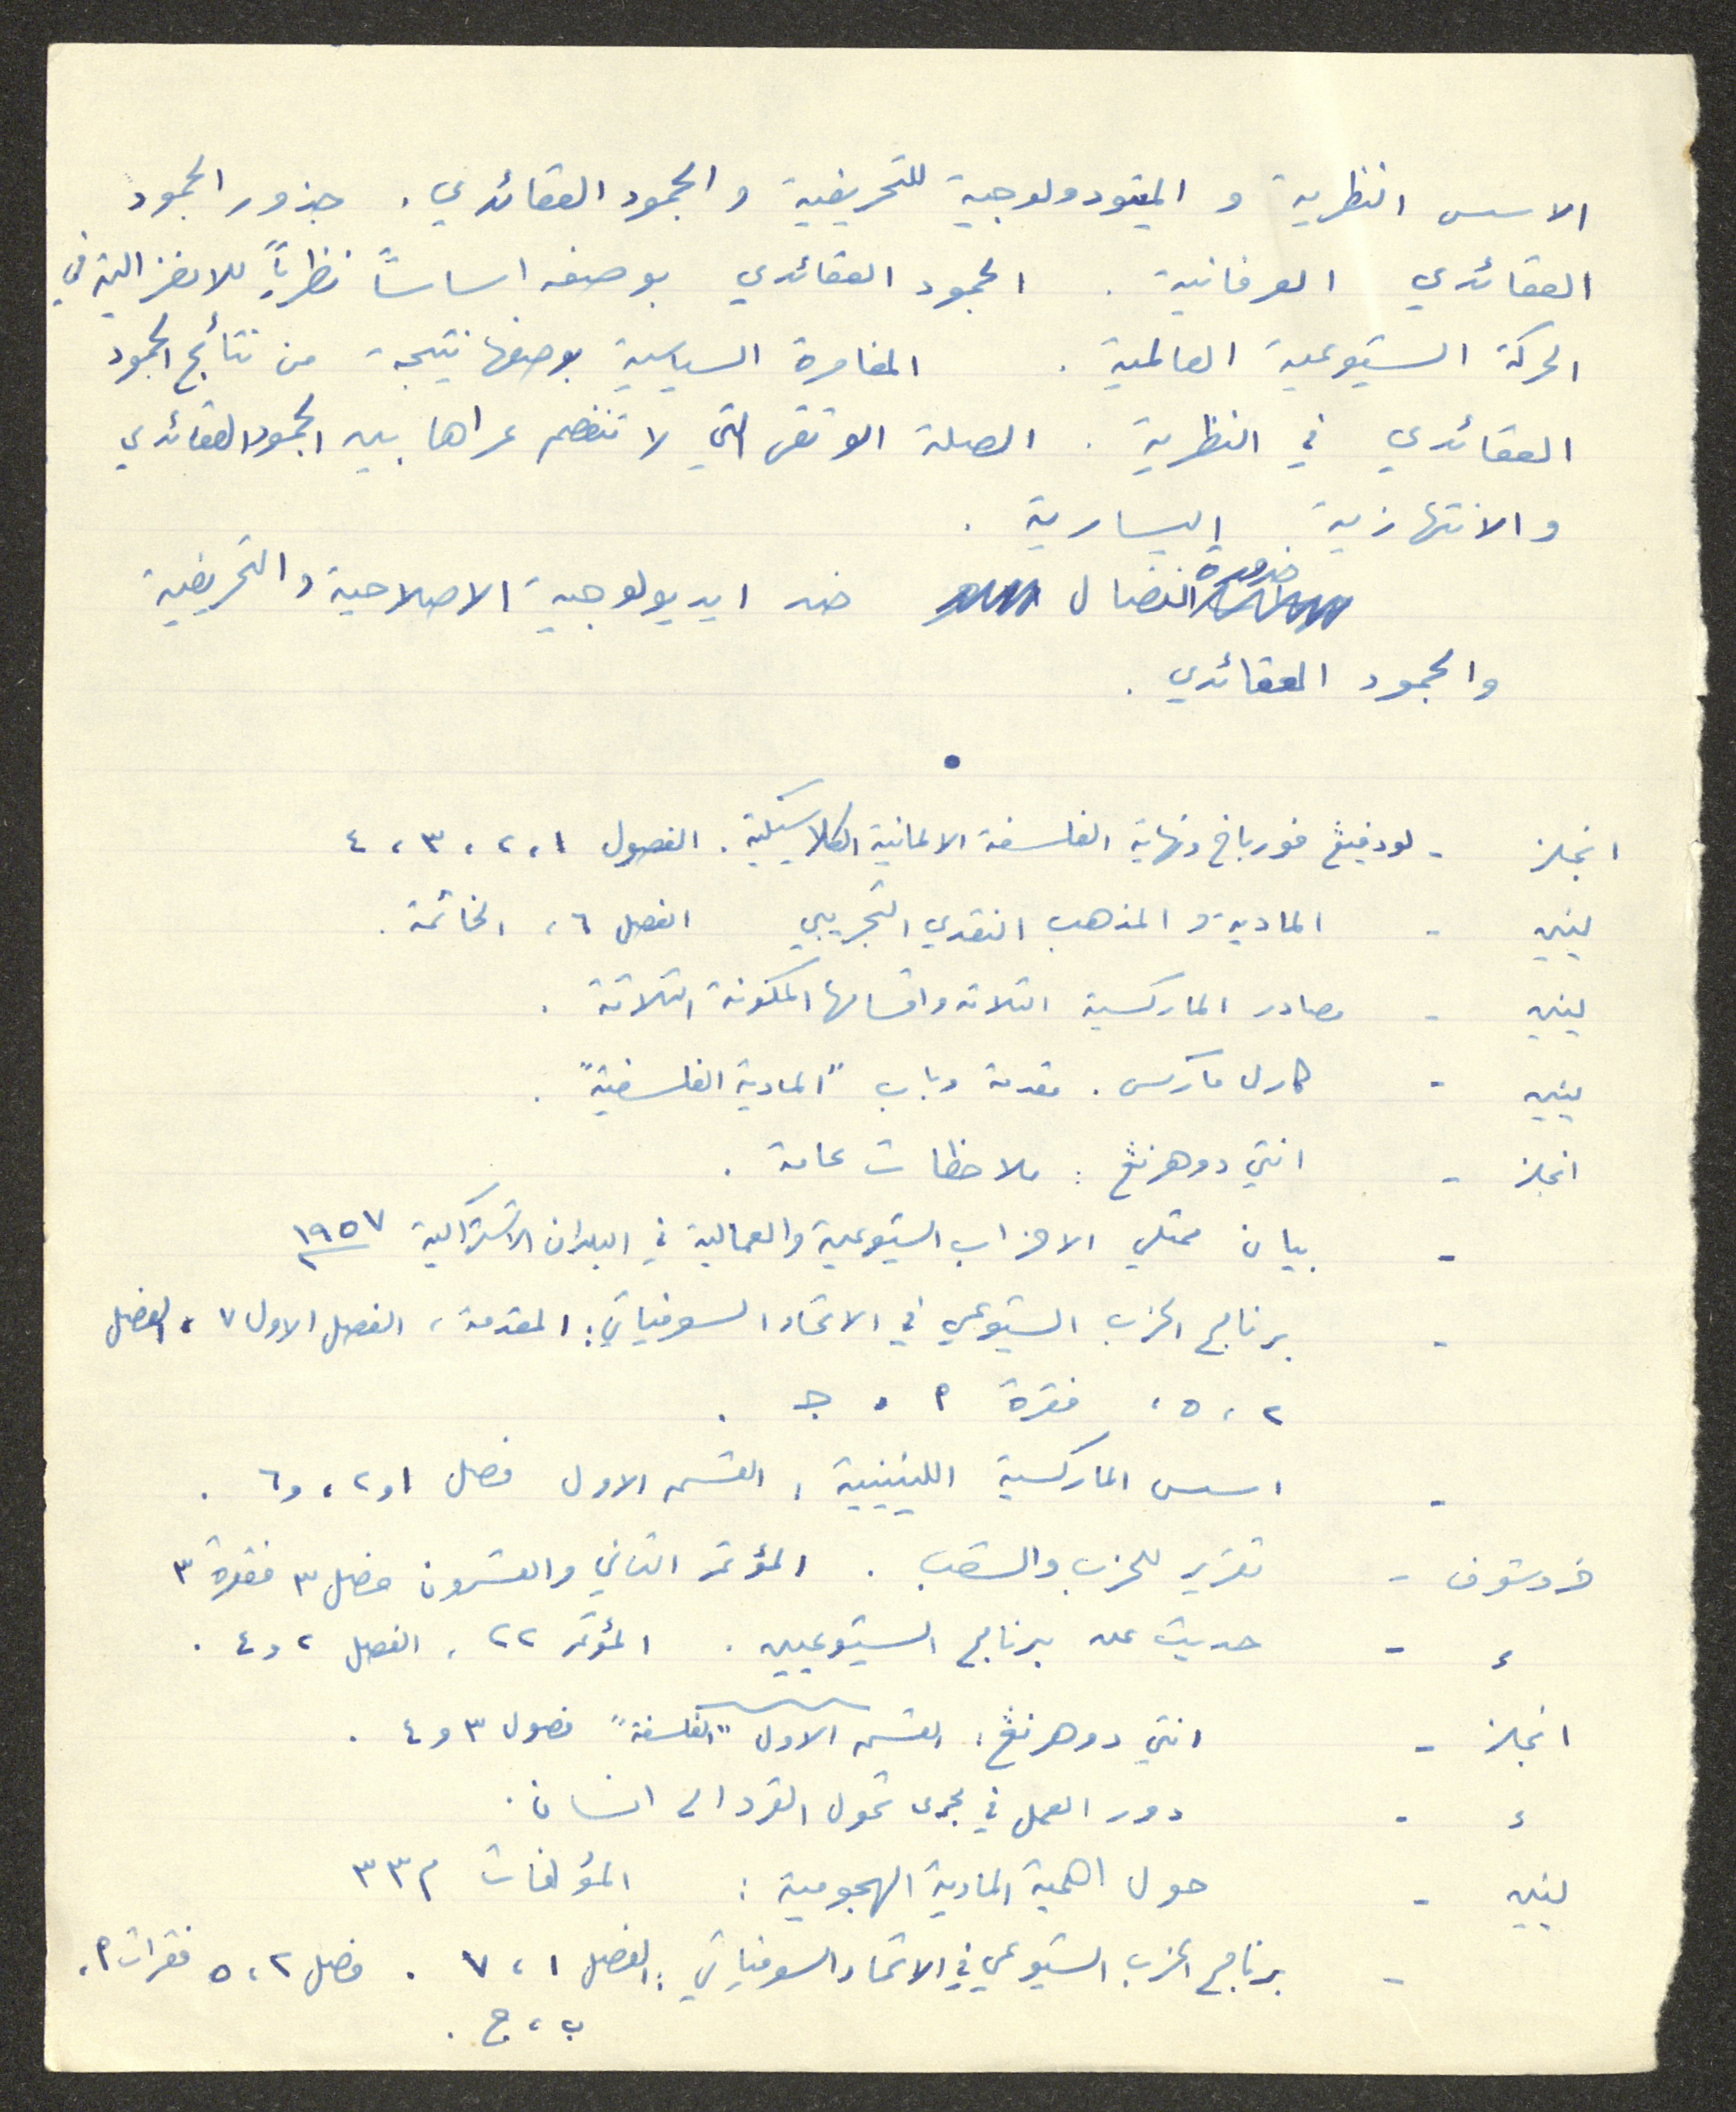 الاسس النظرية و الميتودولوجية للتحريفية والجمود العقائدي. جذور الجمود
العقائدي العرفانية. الجمود العقائدي بوصفه اساساً نظرياً للانعزالية في
الحركة الشيوعية العالمية. المغامرة السياسية بوصفها نتيجة من نتائج الجمود
العقائدي في النظرية. الصلة الوثقى التي لا تنفصم عراها بين الجمود العقائدي
والانتهازية اليسارية.
ضرورة
النضال ضد ايديولوجية الاصلاحية والتحريفية
والجمود العقائدي.
انجلز - لودفيغ فورباخ ونهاية الفلسفة الالمانية الكلاسيكية. الفصول ١، ٢، ٣، ٤
لينين - المادية والمذهب النقدي التجريبي الفصل ٦، الخاتمة.
لينين - مصادر الماركسية الثلاثة واقسامها المكونة الثلاثة.
لينين - كارل ماركس. مقدمة وباب "المادية الفلسفية".
انجلز - انتي دوهرنغ: ملاحظات عامة.
- بيان ممثلي الاحزاب الشيوعية والعمالية في البلدان الاشتراكية ١٩٥٧
- برنامج الحزب الشيوعي في الاتحاد السوفياتي: المقدمة، الفصل الاول ٧، الفصل
٢، ٥، فقرة أ، جـ.
- اسس الماركسية اللينينية، القسم الاول فصل ١ و٢، و٦.
خروشوف - تقرير للحزب والشعب. المؤتمر الثاني والعشرون فصل ٣ فقرة ٣
ء - حديث عن برنامج الشيوعيين. المؤتمر ٢٢، الفصل ٢ و٤.
انجلز - انتي دوهرنغ: القسم الاول "الفلسفة" فصول ٣ و٤.
ء - دور العمل في مجرى تحول القرد الى انسان.
لينين - حول اهمية المادية الهجومية: المؤلفات م ٣٣
- برنامج الحزب الشيوعي في الاتحاد السوفياتي: الفصل ١، ٧. فصل ٢، ٥ فقرات أ،
ب، ج.